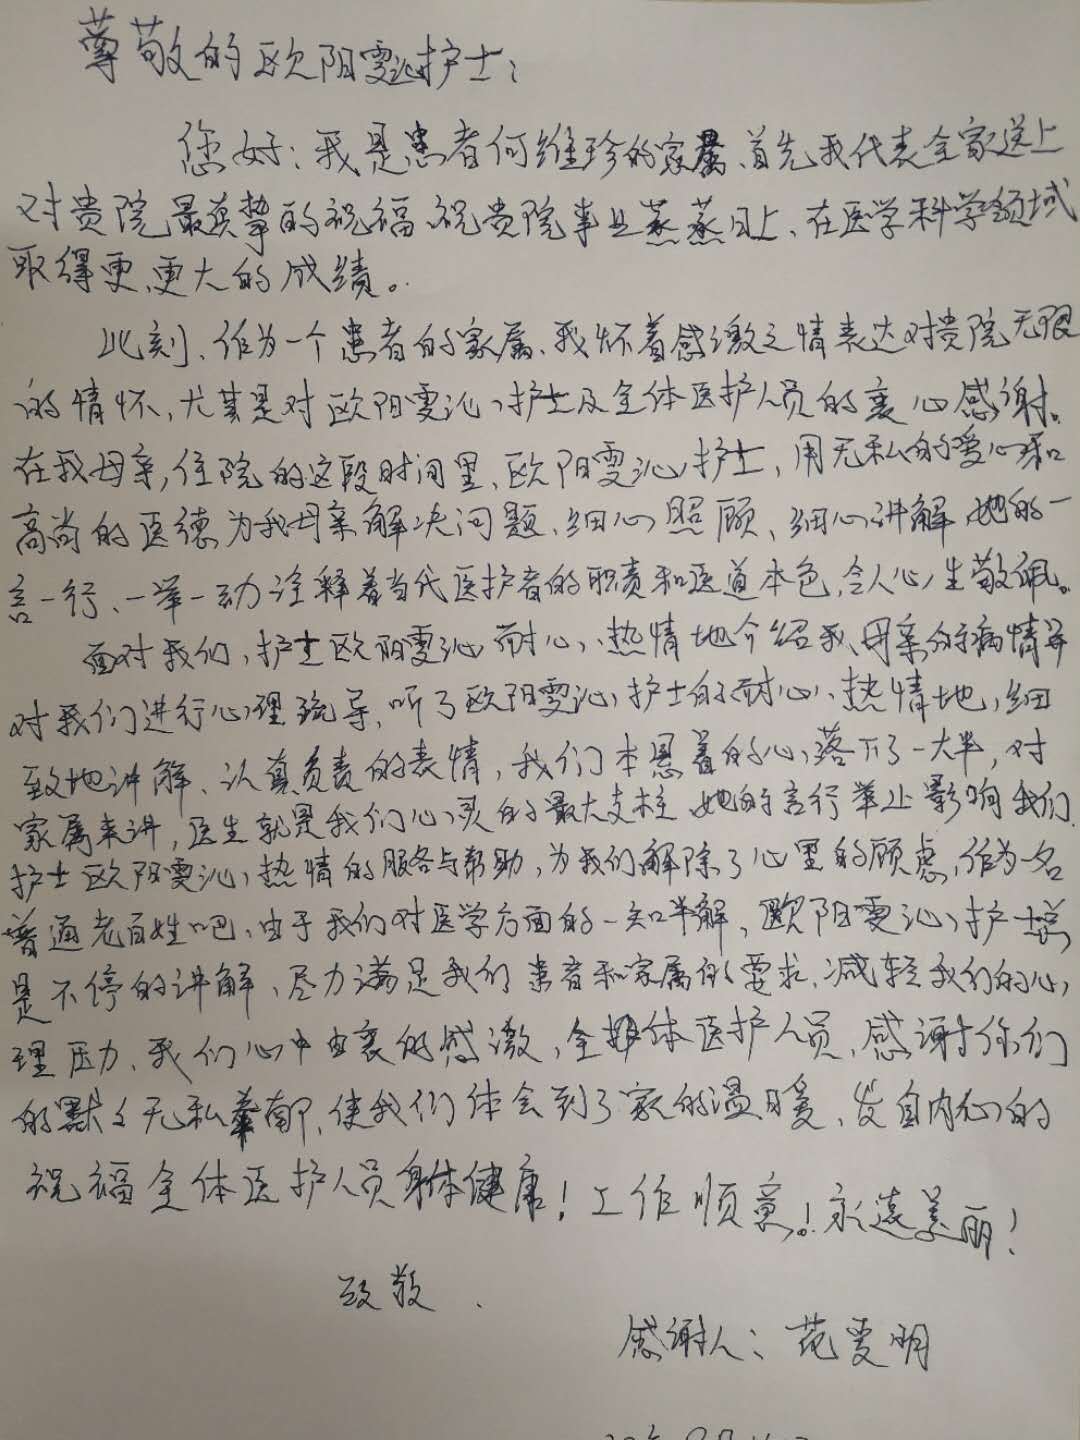 尊敬的欧阳雯沁护士：
您好：我是患者何维珍的家属、首先我代表全家送上
对贵院最真挚的祝福、祝贵院事业蒸蒸日上、在医学科学领域
取得更、更大的成绩。
此刻、作为一个患者的家属、我怀着感激之情表达对贵院无限
的情怀，尤其是对欧阳雯沁护士及全体医护人员的衷心感谢。
在我母亲，住院的这段时间里、欧阳雯沁护士，用无私的爱心和
高尚的医德为我母亲解决问题、细心照顾、细心讲解、她的一
言一行、一举一动诠释着当代医护者的职责和医道本色，令人心生敬佩。
面对我们，护士欧阳雯沁耐心，热情地介绍我母亲的病情并
对我们进行心理疏导，听了欧阳雯沁护士的耐心、热情地，细
致地讲解、认真负责的表情，我们本悬着的心落下了一大半，对
家属来讲，医生就是我们心灵的最大支柱，她的言行举止影响我们，
护士欧阳雯沁，热情的服务与帮助，为我们解除了心里的顾虑，作为一名
普通老百姓吧，由于我们对医学方面的一知半解，欧阳雯沁护士总
是不停的讲解、尽力满足我们患者和家属的要求，减轻我们的心
理压力，我们心中由衷的感激，全体医护人员，感谢你们
的默々无私奉献，使我们体会到了家的温暖，发自内心的
祝福全体医护人员身体健康！工作顺意！永远美丽！
致敬、
感谢人：范雯明